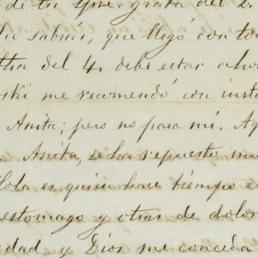 de tu apre. grata del 2.
sabrás, que llegó con to
del 4. debe estar
me recomendó con inst
Anita; pero no para mí. A
Anita, se ha repuesto mu
es quien hace tiempo e
estomago y otras de dolor
edad, y Dios me conceda